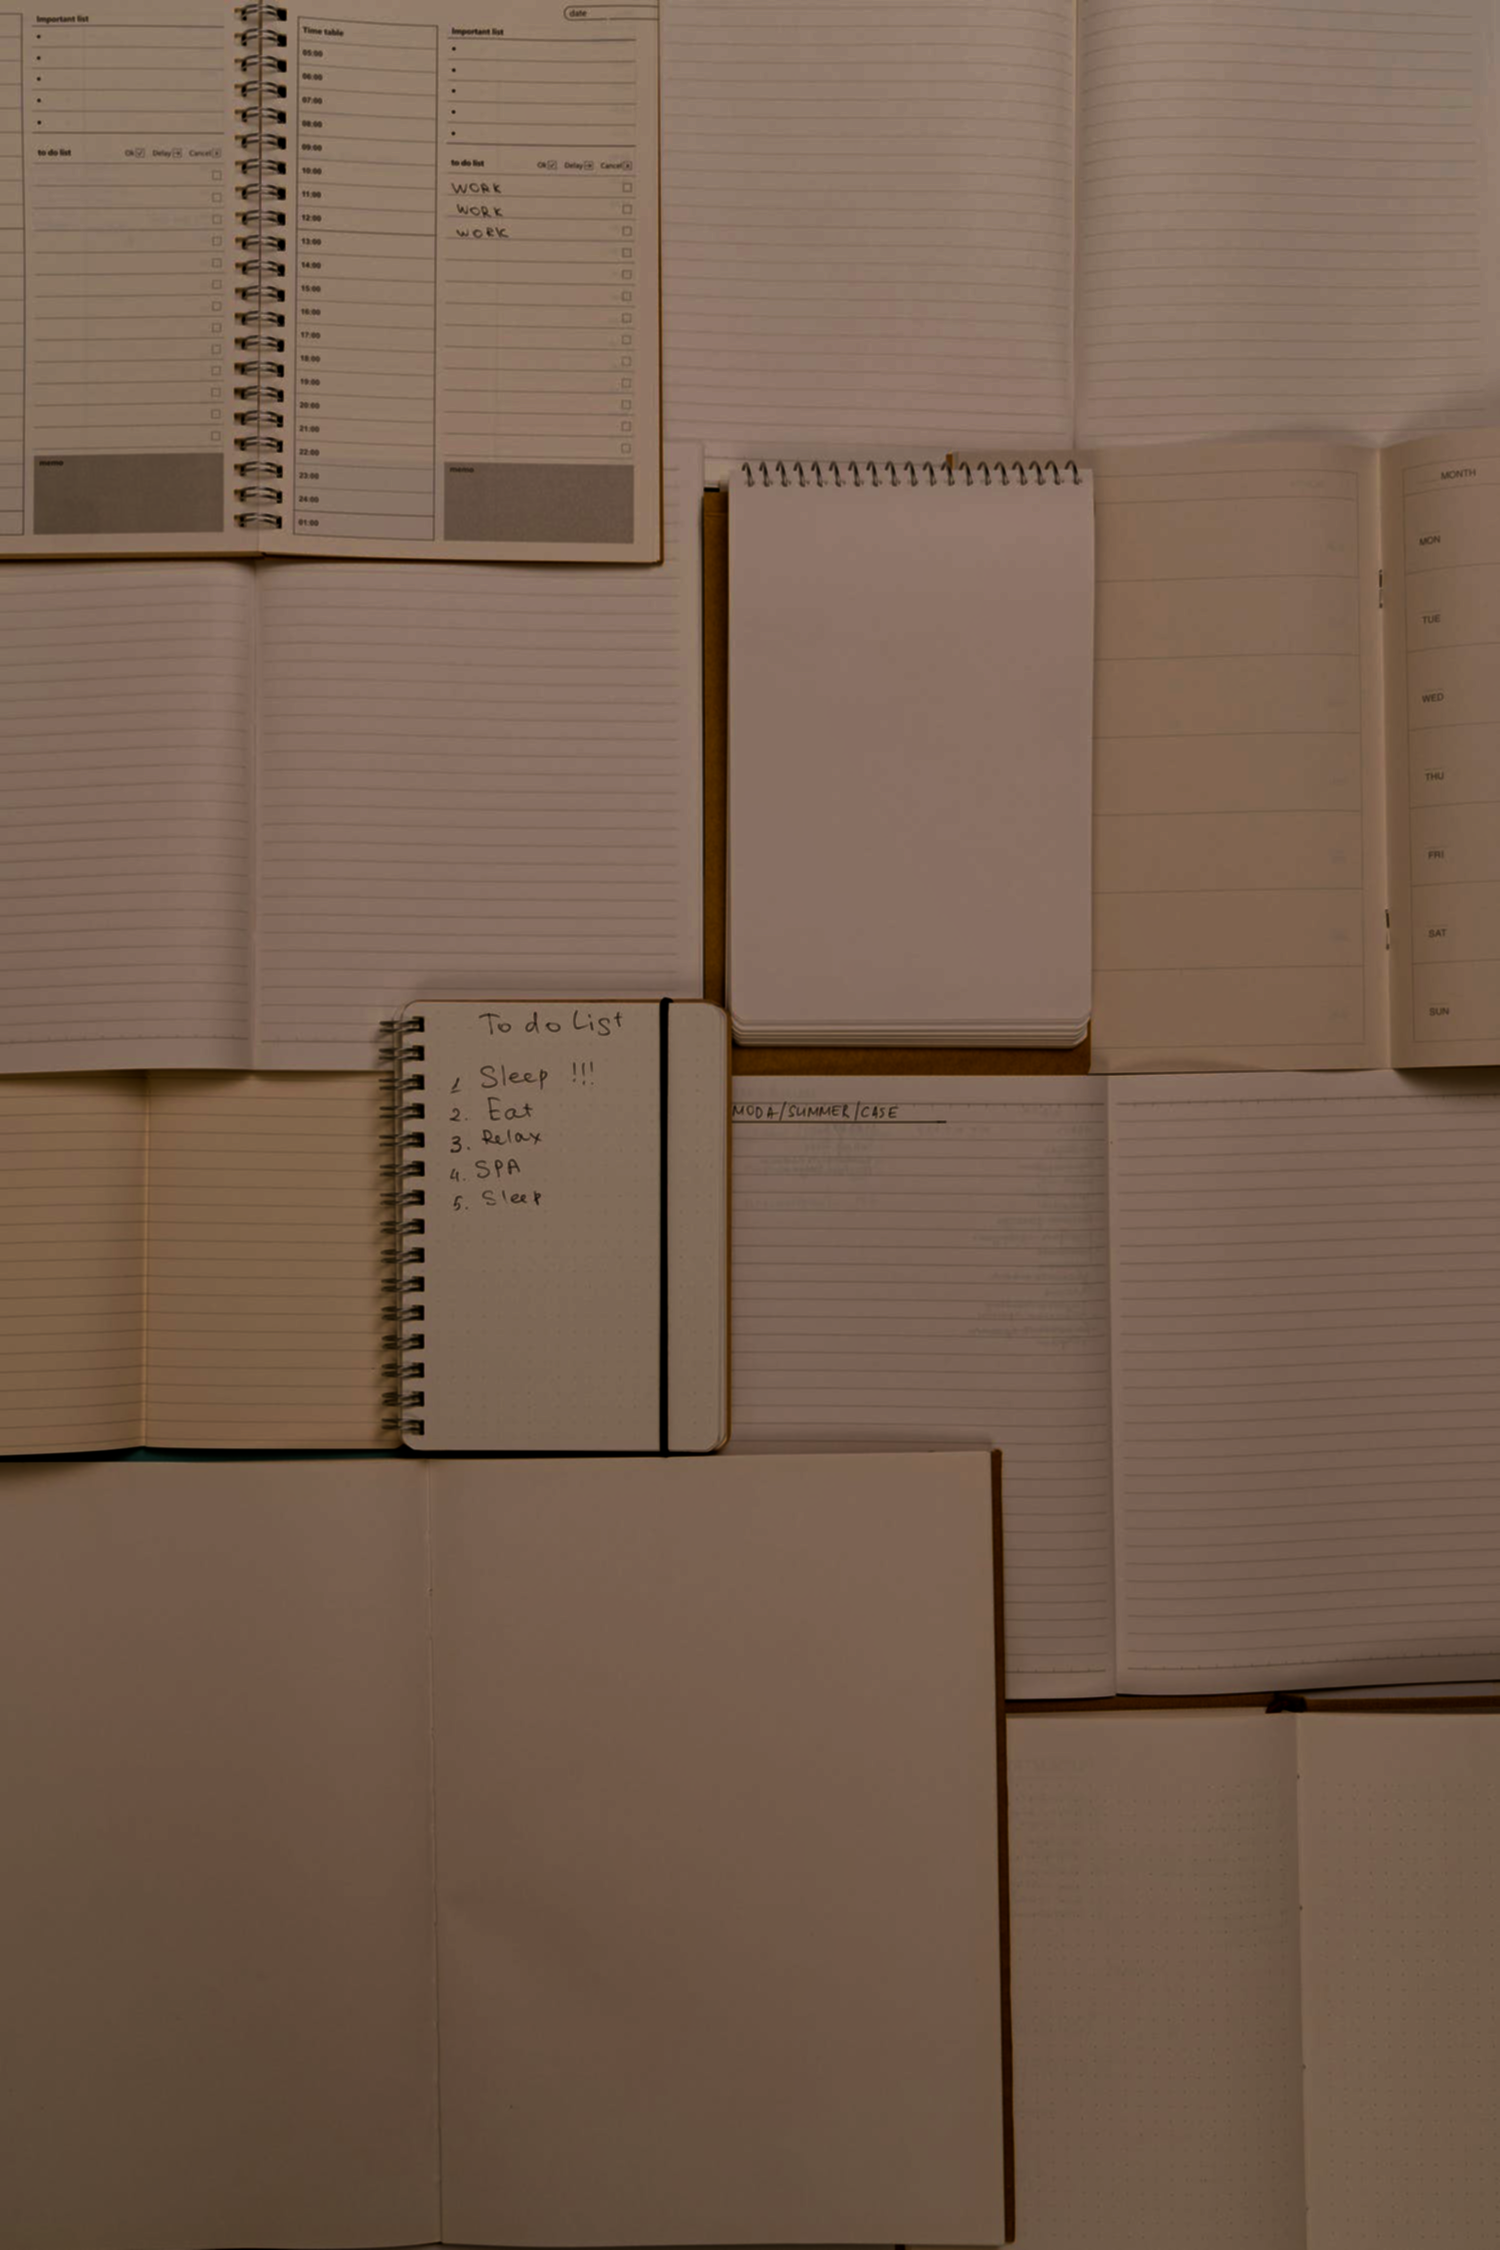 Important list
to do list Ok Delay Cancel
memo
date
Time table
05:00
06:00
07:00
08:00
09:00
10:00
11:00
12:00
13:00
14:00
15:00
16:00
17:00
18:00
19:00
20:00
21:00
22:00
23:00
24:00
01:00
Important list
to do list Ok Delay Cancel
WORK
WORK
WORK
memo
MONTH
MON
TUE
WED
THU
FRI
SAT
SUN
To do List
1 Sleep !!!
2. Eat
3. Relax
4. SPA
5. Sleep
MODA/SUMMER/CASE